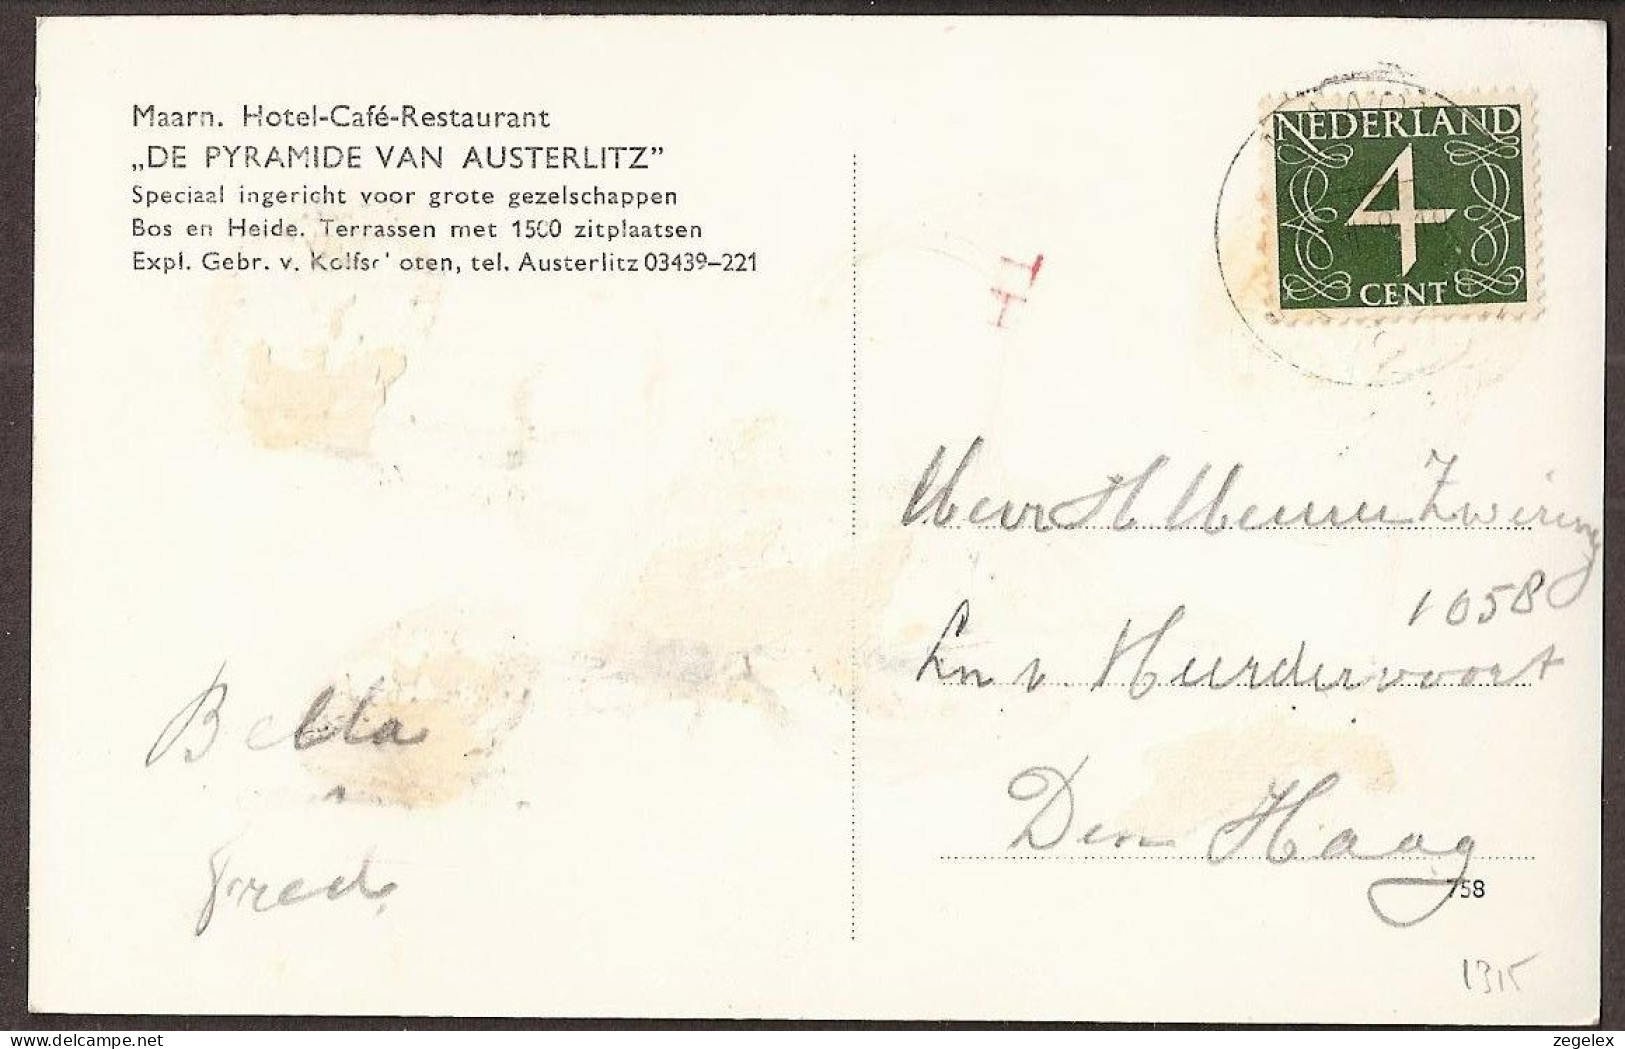 Maarn. Hotel-Café-Restaurant
„DE PYRAMIDE VAN AUSTERLITZ”
Speciaal ingericht voor grote gezelschappen
Bos en Heide. Terrassen met 1500 zitplaatsen
Expl. Gebr. v. Kolfsc' oten, tel. Austerlitz 03439-221
NEDERLAND
4
CENT
H Zwiring
1058
Ln v. Meerdervoort
Den Haag
758
Bella
Fred.
1315
delcampe.net
zegelex